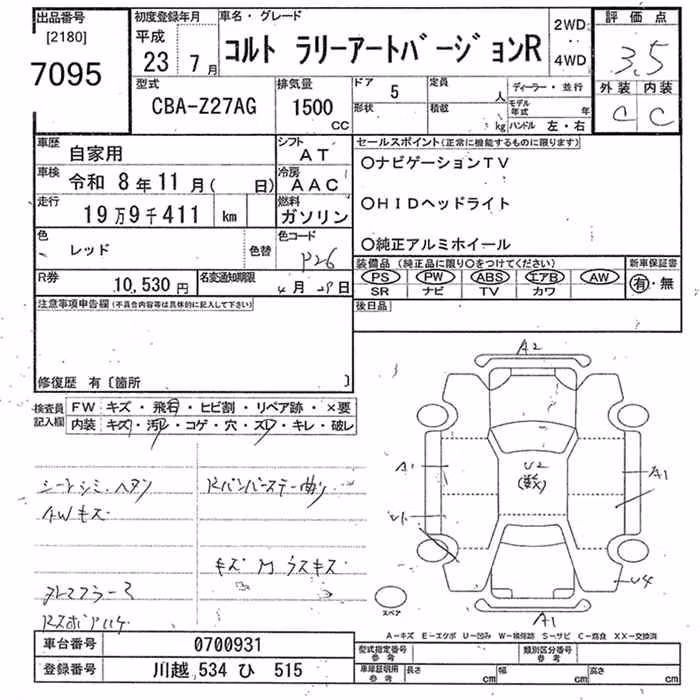 出品番号 [2180] 7095
初度登録年月 平成 23 7月
車名・グレード コルト ラリーアートバージョンR
2WD ・・ 4WD
評価点 3.5
外装 内装
C C
型式 CBA-Z27AG
排気量 1500 CC
ドア 5 形状
定員 人 積載 kg
ディーラー・並行
モデル年式 年
ハンドル 左・右
車歴 自家用
シフト AT
車検 令和 8年11月( 日)
冷房 AAC
走行 19万9千411 km
燃料 ガソリン
色 レッド 色替
色コード P26
R券 10,530円
名変通知期限 4月29日
セールスポイント(正常に機能するものに限ります)
○ナビゲーションTV
○HIDヘッドライト
○純正アルミホイール
装備品(純正品に限り○をつけてください)
新車保証書
PS PW ABS エアB AW
有・無
SR ナビ TV カワ
後日品
注意事項申告欄(不具合内容等は具体的に記入して下さい)
修復歴 有〔箇所 〕
検査員記入欄
FW キズ・飛石・ヒビ割・リペア跡・×要
内装 キズ・汚レ・コゲ・穴・スレ・キレ・破レ
シートシミ、ヘタリ
AWキズ
Rバンパーステー曲り
キズ M ウスキズ
A2
A1
U2
(数)
A1
U1
U4
A1
スペア
A-キズ E-エクボ U-凹み W-補修跡 S-サビ C-腐食 XX-交換済
車台番号 0700931
登録番号 川越 534 ひ 515
型式指定番号 参考
類別区分番号 参考
車庫証明用 参考 長さ cm 幅 cm 高さ cm